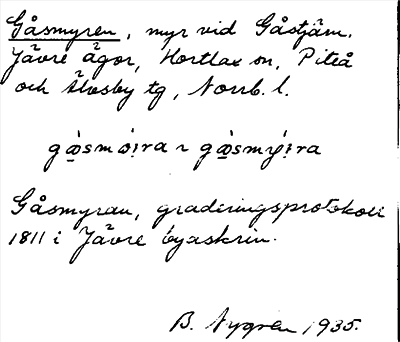 Gåsmyren, myr vid Gåstjärn,
Jävre ägor, Hortlax sn, Piteå
och Älvsby tg, Norrb. l.
Gåsmyran, graderingsprotokoll
1811 i Jävre byaskrin.
B. Nygren 1935.